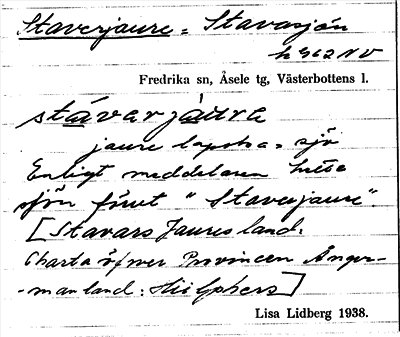 Staverjaure = Stavasjön
h 862 NV
Fredrika sn, Åsele tg, Västerbottens l.
stávarjàure
jaure lapska = sjö
Enligt meddelaren hette
sjön förut "Staverjaure".
[Stavars Jaures land:
Charta öfwer Provincen Ånger-
-manland:]
Lisa Lidberg 1938.